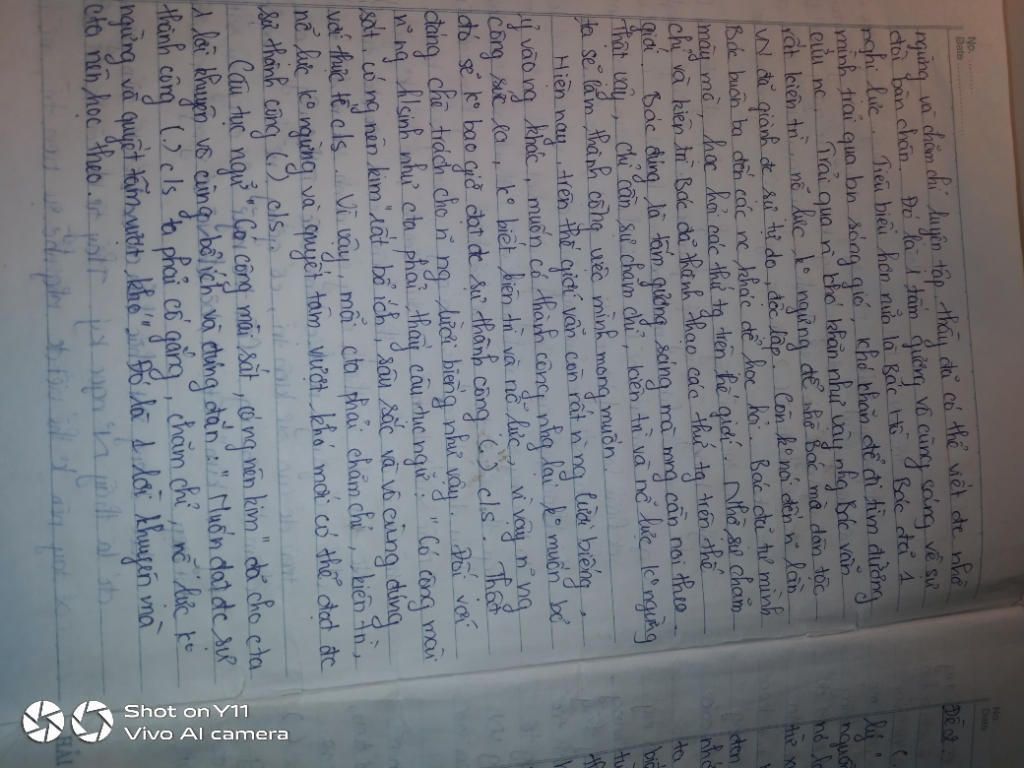 No.
Date
ngừng và chăm chỉ luyện tập thầy đã có thể viết đc nhờ
đôi bàn chân. Đó là 1 tấm gương vô cùng sáng về sự
nghị lực. Tiêu biểu hơn nửa là Bác Hồ. Bác đã 1
mình trải qua bn sóng gió, khó khăn để đi tìm đường
cứu nc. Trải qua n` khó khăn như vậy nhg Bác vẫn
rất kiên trì, nổ lực ko ngừng để nhờ đó mà dân tộc
VN đã giành đc sự tự do, độc lập. Còn ko nói đến n` lần
Bác buôn ba đến các nc khác để học hỏi. Bác đã tự mình
mày mò, học hỏi các thứ tg trên thế giới. Nhờ sự chăm
chỉ và kiên trì Bác đã thành thạo các thứ tg trên thế
giới. Bác đúng là tấm gương sáng mà mng cần noi theo.
Thật vậy, chỉ cần sự chăm chỉ, kiên trì và nổ lực ko ngừng
ta sẽ làm thành công việc mình mong muốn.
Hiện nay, trên thế giới vẫn còn rất n` ng lười biếng,
ỷ vào ng khác, muốn có thành công nhg lại ko muốn bỏ
công sức ra, ko biết kiên trì và nổ lực, vì vậy n` ng
đó sẽ ko bao giờ đạt đc sự thành công (.) c/s. Thật
đáng chê trách cho n` ng lười biếng như vậy. Đối với
n` ng h/sinh như cta phải thấy câu tục ngữ: "Có công mài
sắt, có ng` nên kim" rất bổ ích, sâu sắc và vô cùng đúng
với thực tế c/s. Vì vậy, mỗi cta phải chăm chỉ, kiên trì,
nổ lực ko ngừng và quyết tâm vượt khó mới có thể đạt đc
sự thành công (.) c/s.
Câu tục ngữ "Có công mài sắt, có ng` nên kim" đã cho cta
1 lời khuyên vô cùng bổ ích và đúng đắn: "Muốn đạt đc sự
thành công (.) c/s ta phải có gắng, chăm chỉ, nổ lực ko
ngừng và quyết tâm vượt khó". Đó là 1 lời khuyên mà
cta nên học theo
No.
Date
Shot on Y11
Vivo AI camera